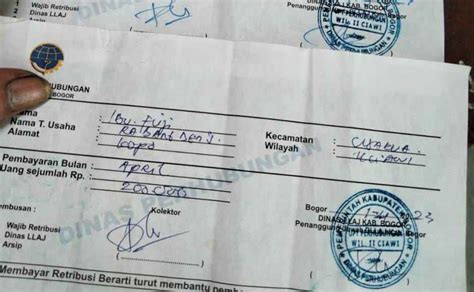 Wajib Retribusi
Dinas LLAJ
DINAS PER
DINAS LLAJ KAB. BOGOR
Penanggung
WIL. II CIAWI
HUBUNGAN
BOGOR
Nama : Ibu Fuji
Nama T. Usaha :
Alamat :
Kecamatan :
Wilayah : CIAWI
Pembayaran Bulan : April
Uang sejumlah Rp. : 200.000
DINAS PERHUBUNGAN
embusan :
Wajib Retribusi
Dinas LLAJ
Arsip
Kolektor
Bogor 23
DINAS LLAJ KAB. BOGOR
Penanggung
PEMERINTAH KABUPATEN BOGOR
WIL. II CIAWI
DINAS PERHUBUNGAN
Membayar Retribusi Berarti turut membantu pem